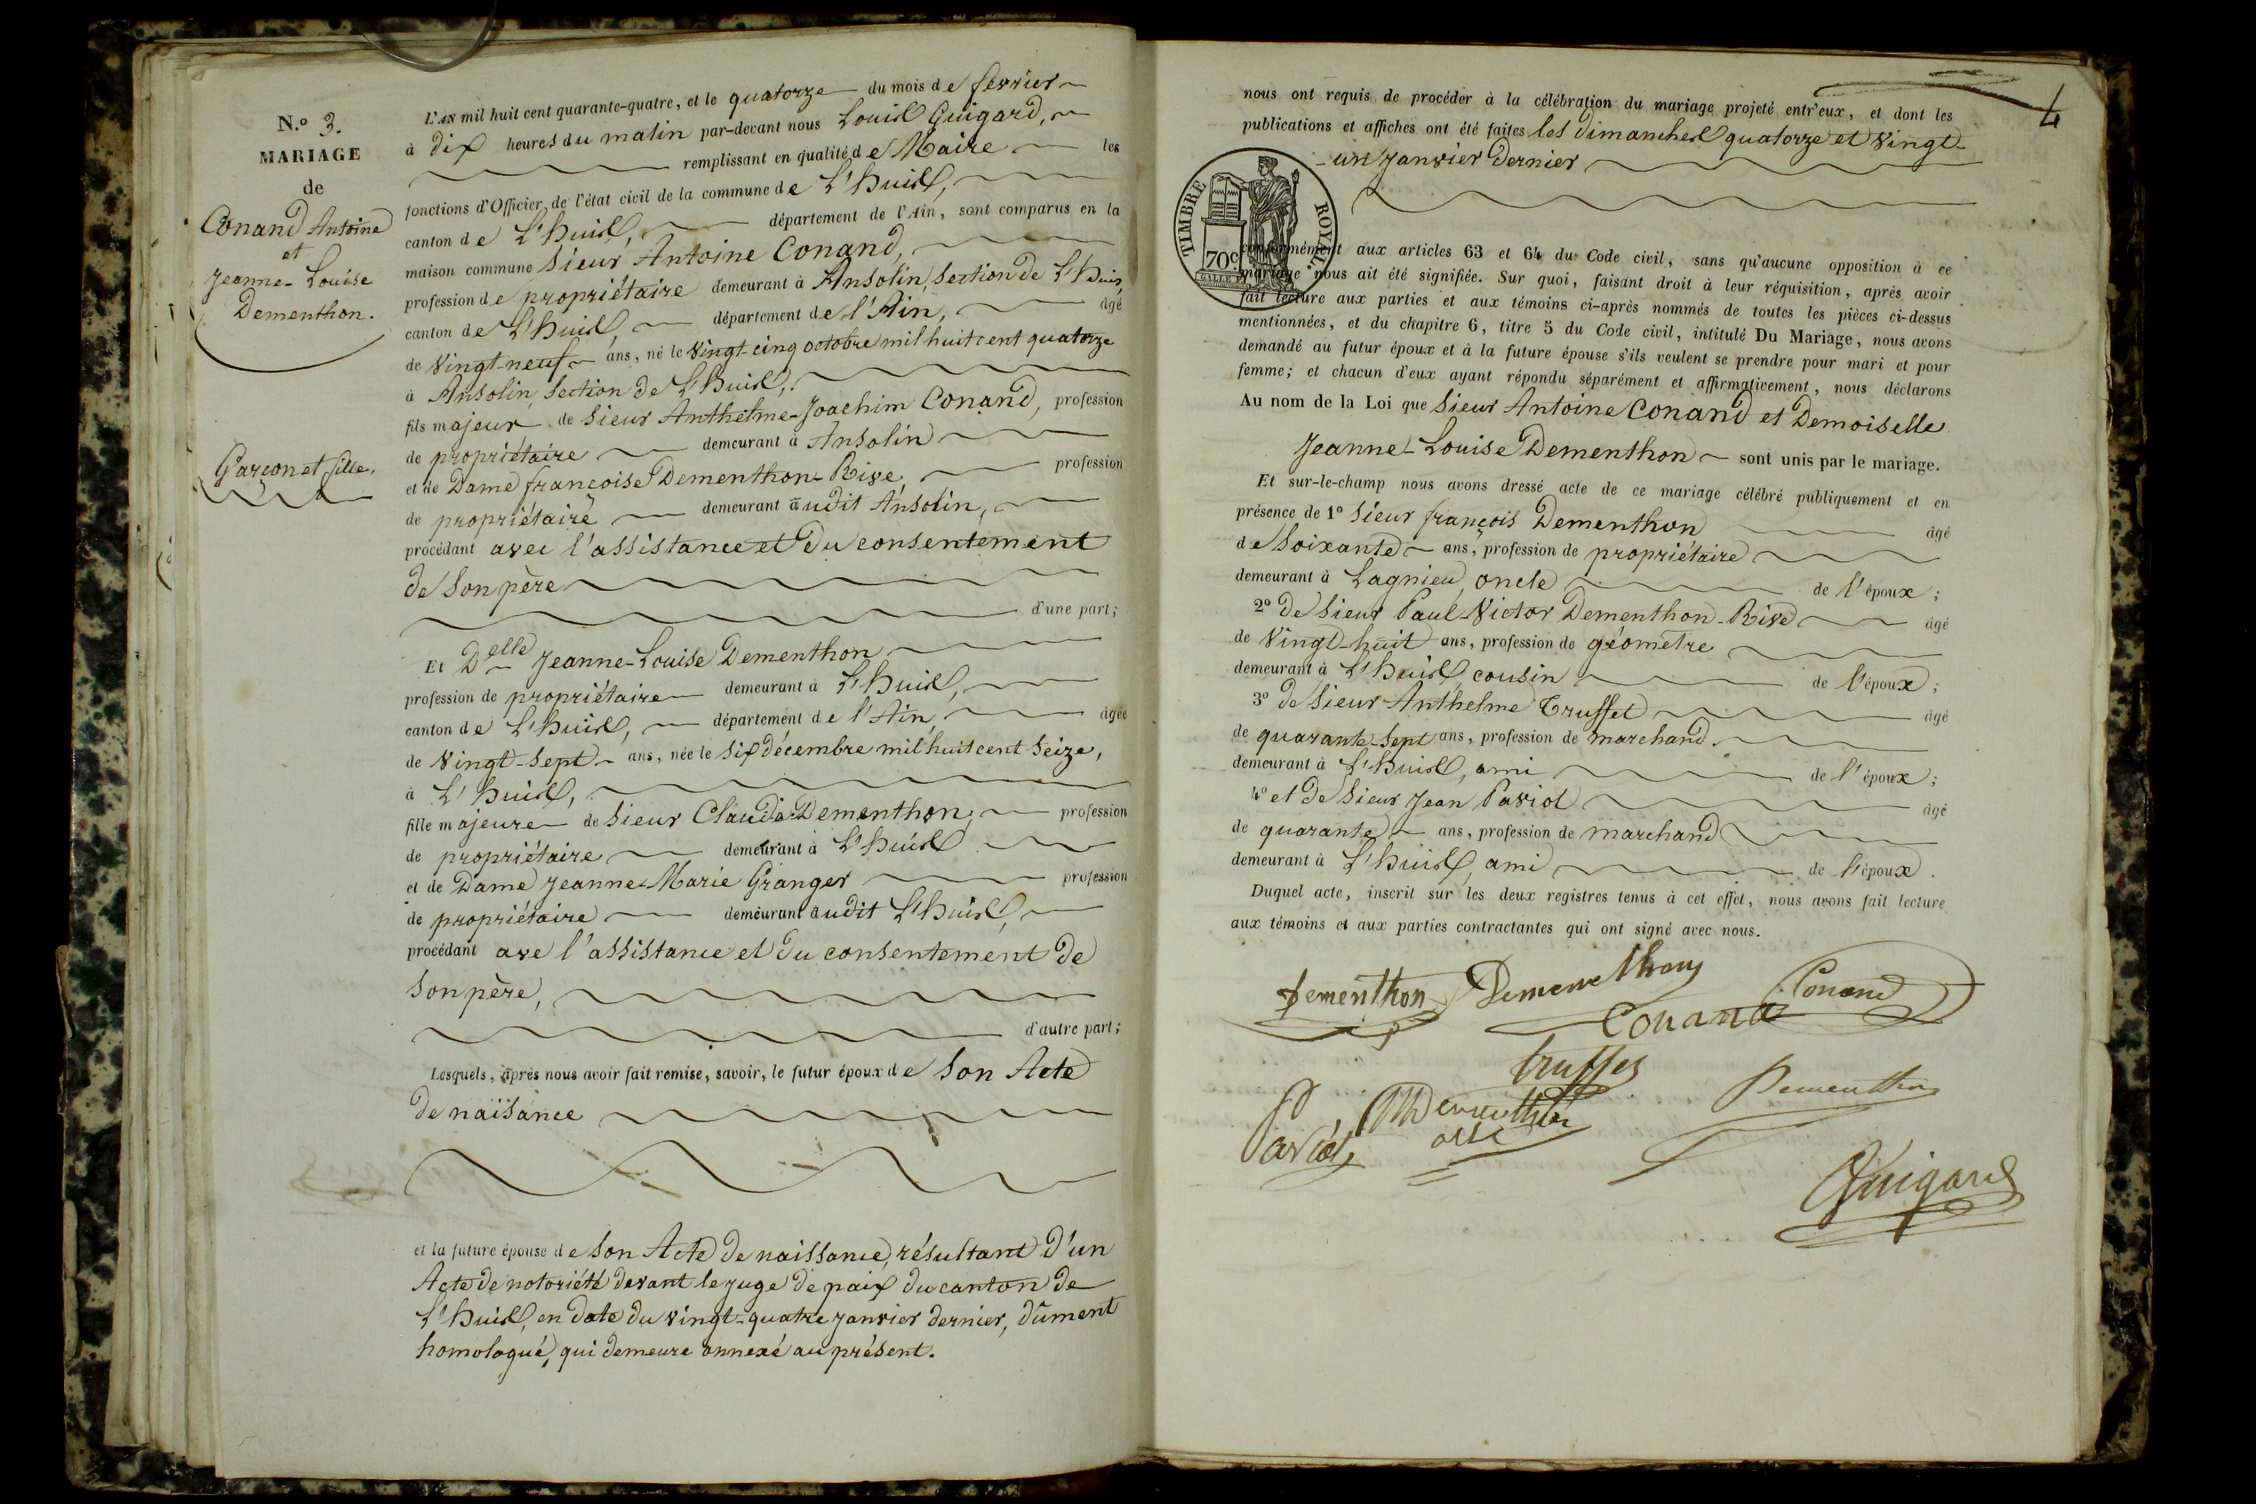 N.º 3.
MARIAGE
de
Conand Antoine
et
Jeanne-Louise
Dementhon.
Garçon et fille.
L'AN mil huit cent quarante-quatre, et le quatorze du mois de février
à dix heures du matin par-devant nous Louis Guigard,
remplissant en qualité de Maire les
fonctions d'Officier de l'état civil de la commune de L'huis,
canton de L'huis, département de l'Ain, sont comparus en la
maison commune Sieur Antoine Conand,
profession de propriétaire demeurant à Ansolin, Section de L'huis,
canton de L'huis, département de l'Ain, âgé
de vingt-neuf ans, né le vingt-cinq octobre mil huit cent quatorze
à Ansolin, Section de L'huis,
fils majeur de Sieur Anthelme-Joachim Conand, profession
de propriétaire demeurant à Ansolin
et de Dame françoise Dementhon-Rive, profession
de propriétaire demeurant audit Ansolin,
procédant avec l'assistance et du consentement
de Son père
d'une part;
Et Delle Jeanne-Louise Dementhon
profession de propriétaire demeurant à L'huis,
canton de L'huis, département de l'Ain, âgée
de vingt-sept ans, née le six décembre mil huit cent seize,
à L'huis,
fille majeure de Sieur Claude Dementhon, profession
de propriétaire demeurant à L'huis
et de Dame Jeanne-Marie Granger profession
de propriétaire demeurant audit L'huis,
procédant ave l'assistance et du consentement de
Son père,
d'autre part;
Lesquels, après nous avoir fait remise, savoir, le futur époux de Son Acte
de naisance
et la future épouse de Son Acte de naissance, résultant d'un
Acte de notoriété devant le juge de paix du canton de
L'huis, en date du vingt-quatre janvier dernier, dûment
homologué, qui demeure annexé au présent.
4
nous ont requis de procéder à la célébration du mariage projeté entr'eux, et dont les
publications et affiches ont été faites les dimanches quatorze et vingt-
-un janvier dernier
TIMBRE ROYAL
70c
conformément aux articles 63 et 64 du Code civil, sans qu'aucune opposition à ce
mariage nous ait été signifiée. Sur quoi, faisant droit à leur réquisition, après avoir
fait lecture aux parties et aux témoins ci-après nommés de toutes les pièces ci-dessus
mentionnées, et du chapitre 6, titre 5 du Code civil, intitulé Du Mariage, nous avons
demandé au futur époux et à la future épouse s'ils veulent se prendre pour mari et pour
femme; et chacun d'eux ayant répondu séparément et affirmativement, nous déclarons
Au nom de la Loi que Sieur Antoine Conand et Demoiselle
Jeanne-Louise Dementhon sont unis par le mariage.
Et sur-le-champ nous avons dressé acte de ce mariage célébré publiquement et en
présence de 1º Sieur françois Dementhon âgé
de Soixante ans, profession de propriétaire
demeurant à Lagnieu, oncle de l'époux;
2º de Sieur Paul-Victor Dementhon-Rive âgé
de vingt-huit ans, profession de géomètre
demeurant à L'huis, cousin de l'époux;
3º de Sieur Anthelme Truffet âgé
de quarante-sept ans, profession de marchand
demeurant à L'huis, ami de l'époux;
4º et de Sieur Jean Paviot âgé
de quarante ans, profession de marchand
demeurant à L'huis, ami de l'époux.
Duquel acte, inscrit sur les deux registres tenus à cet effet, nous avons fait lecture
aux témoins et aux parties contractantes qui ont signé avec nous.
Dementhon Dementhon Conand
Conand
Truffet
Paviot Dementhon
Dementhon
Guigard